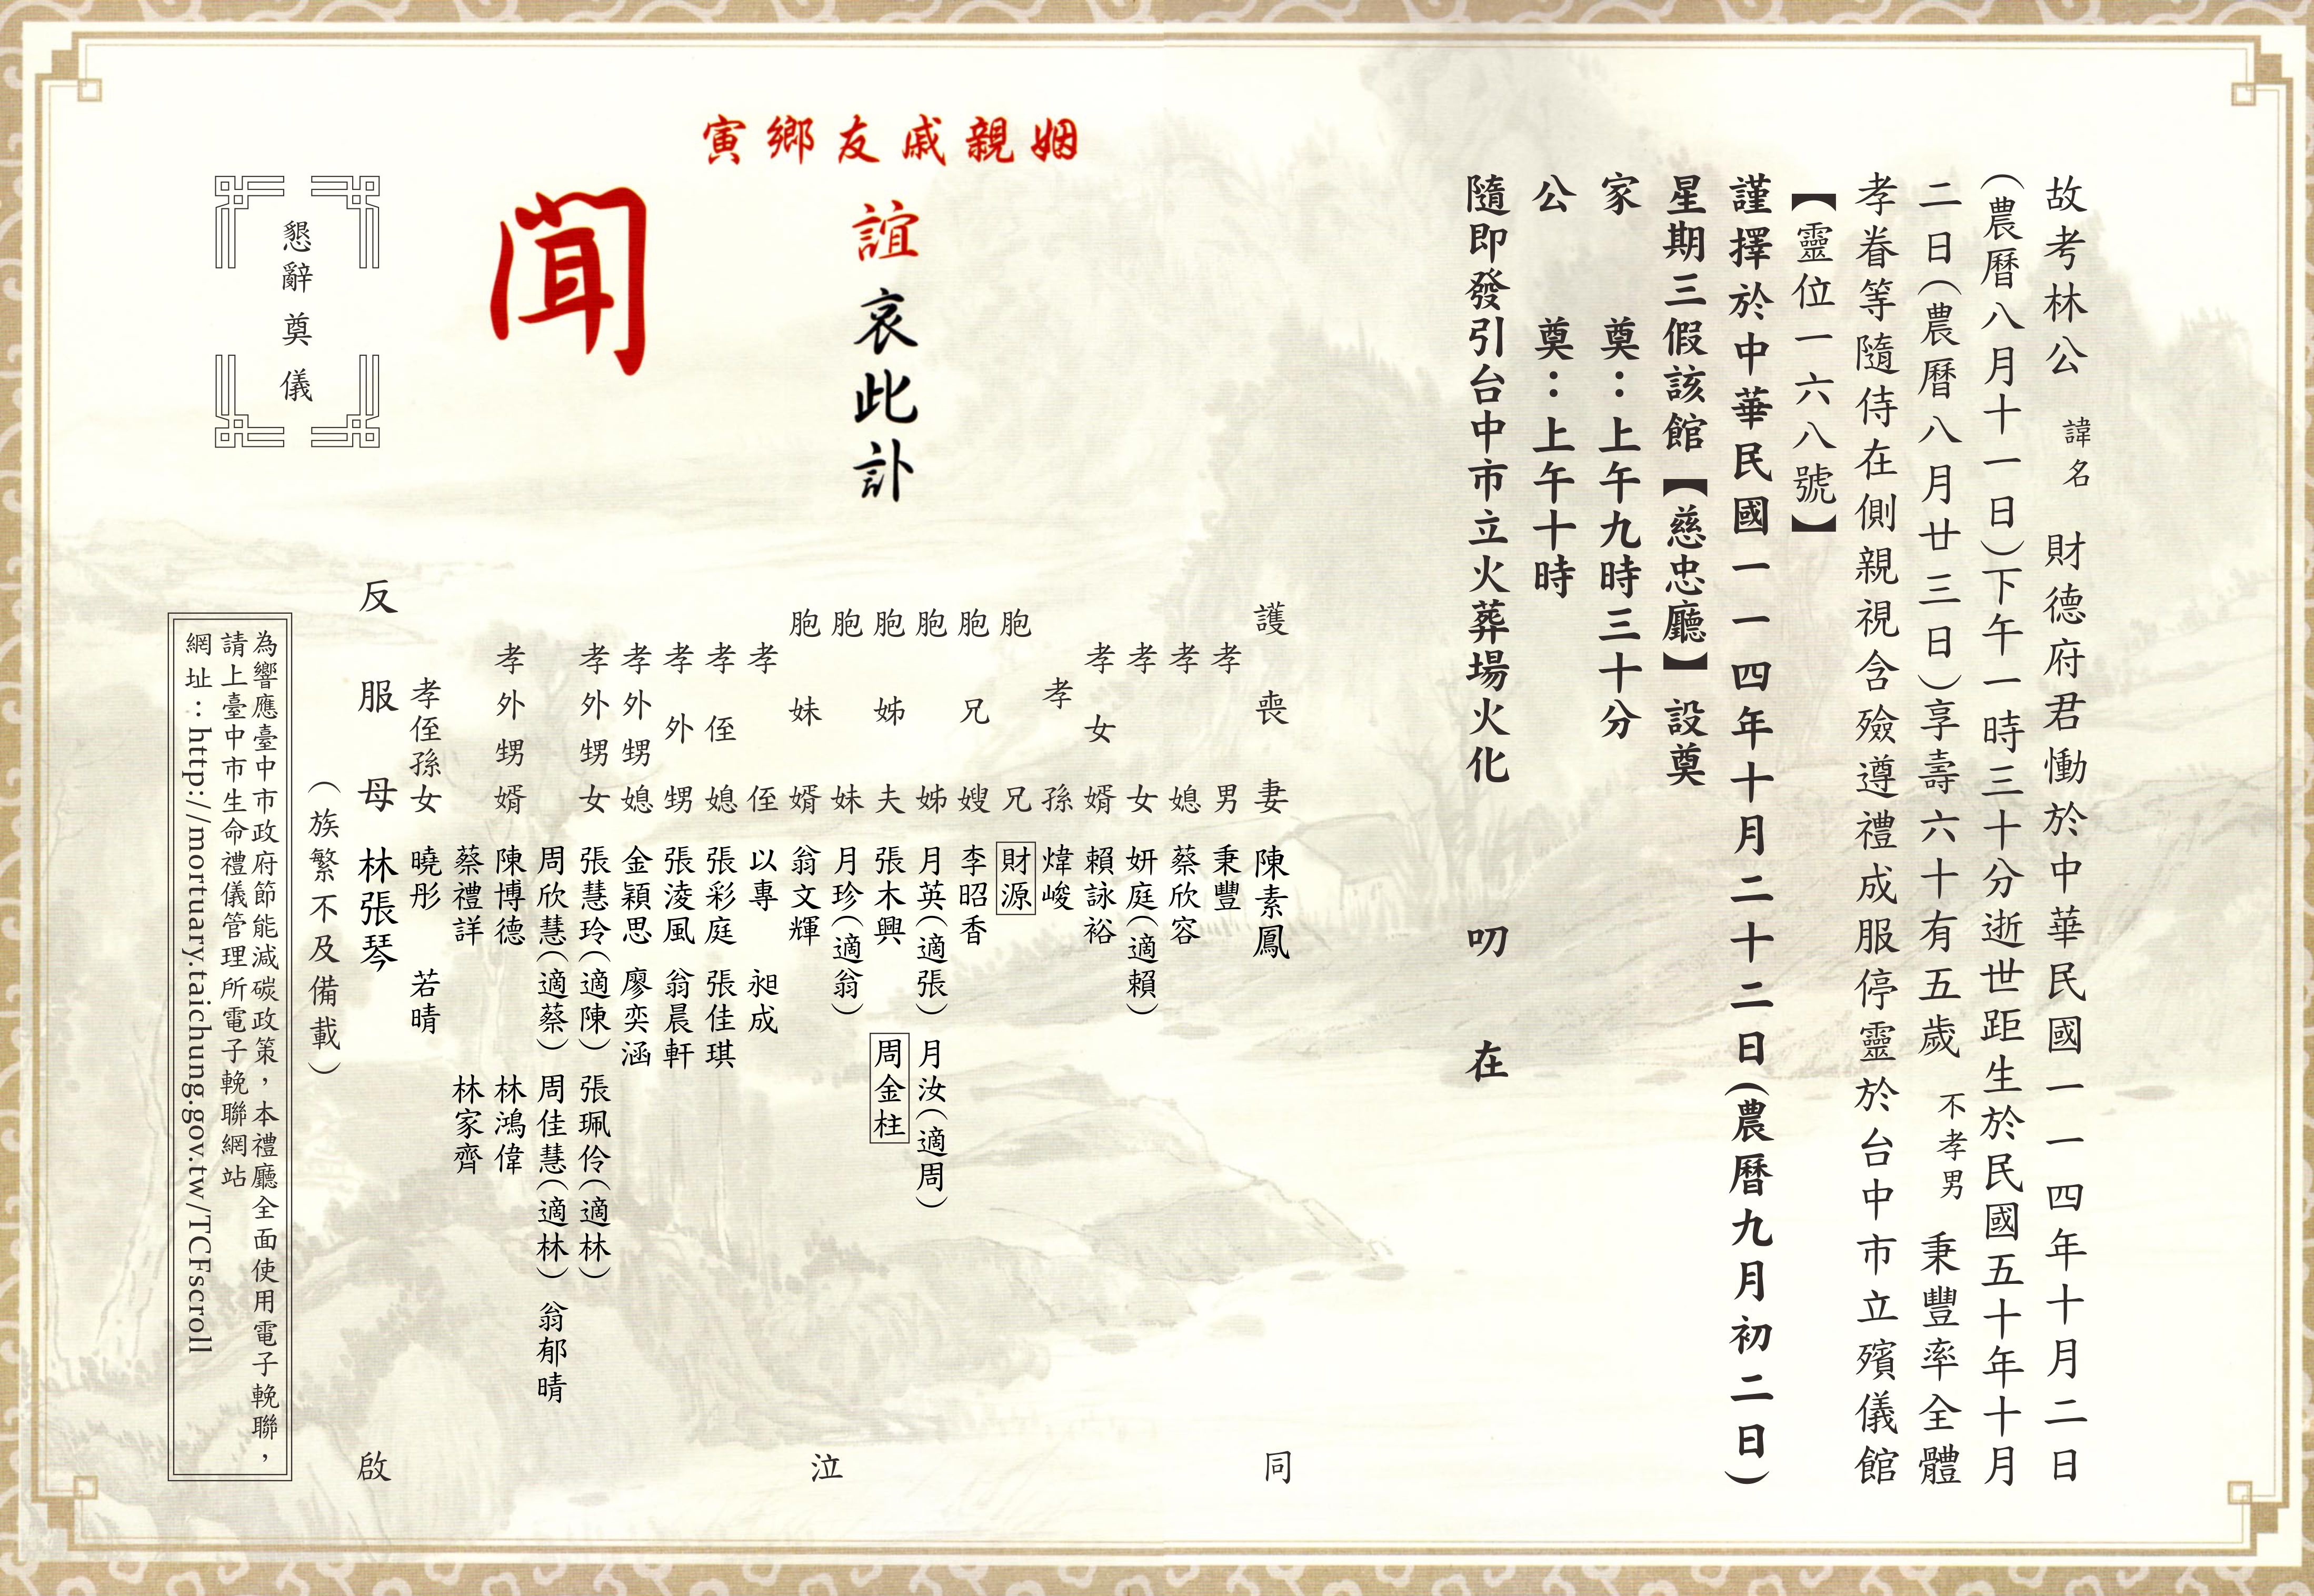 故考林公 諱名 財德府君慟於中華民國一一四年十月二日
(農曆八月十一日)下午一時三十分逝世距生於民國五十年十月
二日(農曆八月廿三日)享壽六十有五歲 不孝男 秉豐率全體
孝眷等隨侍在側親視含殮遵禮成服停靈於台中市立殯儀館
【靈位一六八號】
謹擇於中華民國一一四年十月二十二日(農曆九月初二日)
星期三假該館【慈忠廳】設奠
家 奠：上午九時三十分
公 奠：上午十時
隨即發引台中市立火葬場火化
叨 在
姻親戚友鄉寅
誼哀此訃
聞
懇辭奠儀
護喪妻 陳素鳳
孝男 秉豐
孝媳 蔡欣容
孝女 妍庭(適賴)
孝女婿 賴詠裕
孝孫 煒峻
胞兄 財源
胞兄嫂 李昭香
胞姊 月英(適張) 月汝(適周)
胞姊夫 張木興 周金柱
胞妹 月珍(適翁)
胞妹婿 翁文輝
孝侄 以專 昶成
孝侄媳 張彩庭 張佳琪
孝外甥 張淩風 翁晨軒
孝外甥媳 金穎思 廖奕涵
孝外甥女 張慧玲(適陳) 張珮伶(適林)
周欣慧(適蔡) 周佳慧(適林) 翁郁晴
孝外甥婿 陳博德 林鴻偉
蔡禮詳 林家齊
孝侄孫女 曉彤 若晴
反服母 林張琴
同 泣 啟
(族繁不及備載)
為響應臺中市政府節能減碳政策，本禮廳全面使用電子輓聯，
請上臺中市生命禮儀管理所電子輓聯網站
網址：http://mortuary.taichung.gov.tw/TCFscroll